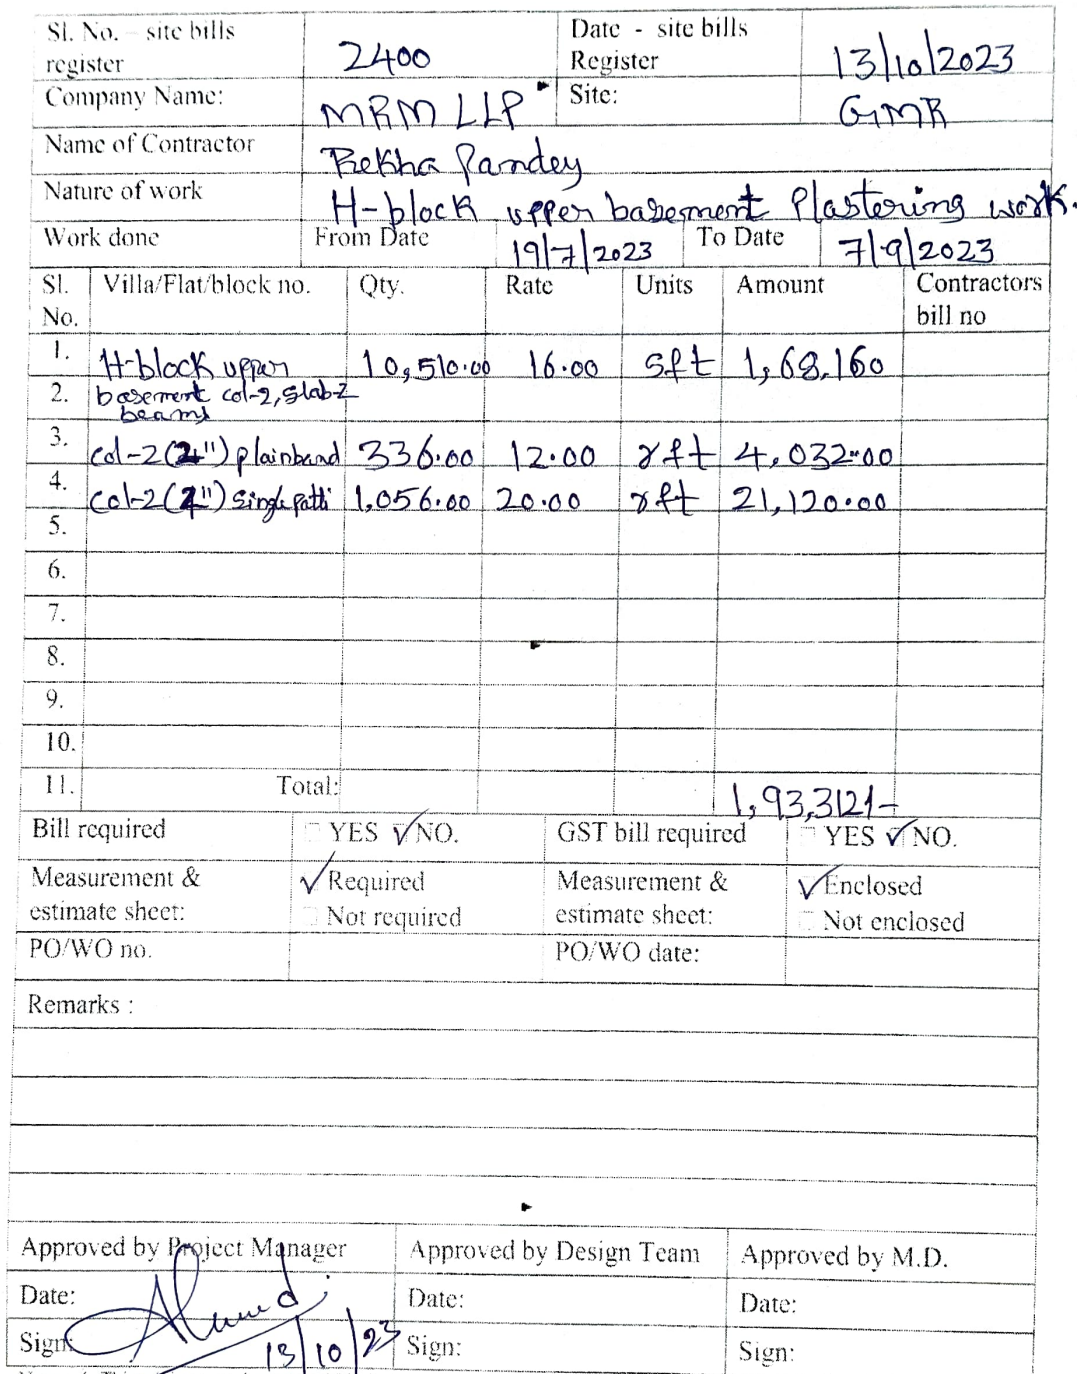 Sl. No. - site bills register 2400 Date - site bills Register 13/10/2023
Company Name: MRM LLP Site: GMR
Name of Contractor Rekha Pandey
Nature of work H-block upper basement Plastering work.
Work done From Date 19/7/2023 To Date 7/9/2023
Sl. No. Villa/Flat/block no. Qty. Rate Units Amount Contractors bill no
1. H-block upper 10,510.00 16.00 sft 1,68,160
2. basement col-2, slab-2
beams
3. col-2 plainband 336.00 12.00 rft 4,032.00
4. col-2 single patti 1,056.00 20.00 rft 21,120.00
5.
6.
7.
8.
9.
10.
11. Total: 1,93,312/-
Bill required YES ✓ NO. GST bill required YES ✓ NO.
Measurement & ✓ Required Measurement & ✓ Enclosed
estimate sheet: Not required estimate sheet: Not enclosed
PO/WO no. PO/WO date:
Remarks :
Approved by Project Manager Approved by Design Team Approved by M.D.
Date: Date: Date:
Sign: 13/10/23 Sign: Sign: